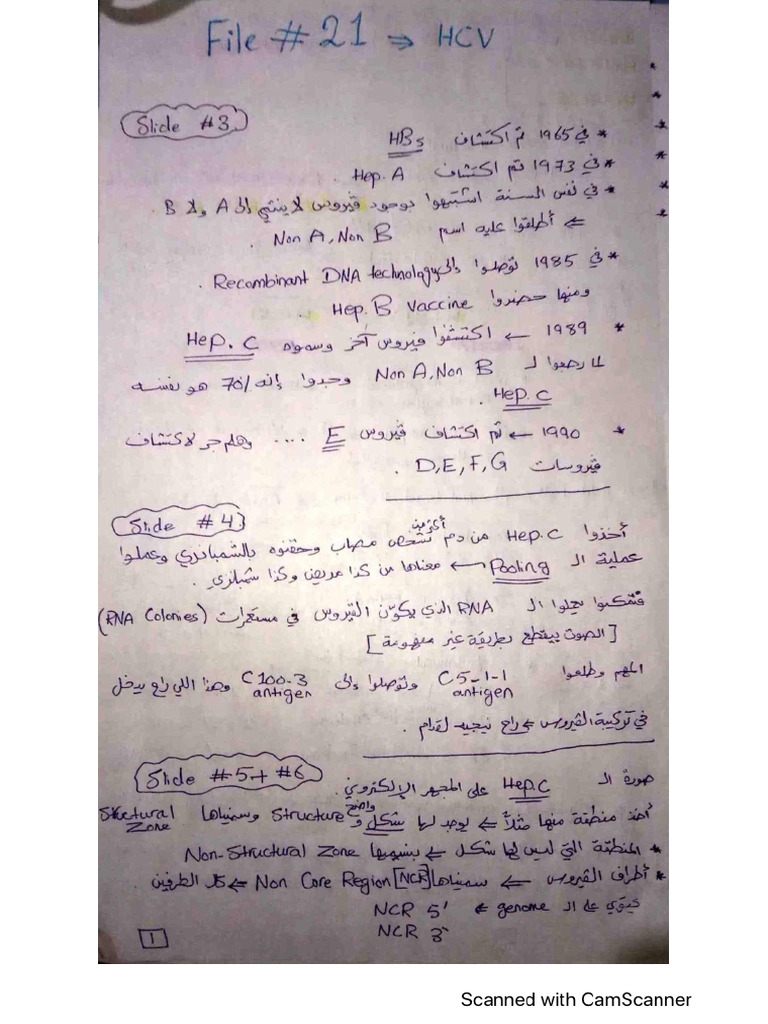 File # 21 ⇒ HCV
Slide #3
* في 1965 تم اكتشاف HBs
* في 1973 تم اكتشاف Hep. A .
* في نفس السنة اشتبهوا بوجود فيروس لا ينتمي إلى A ولا B .
⇐ أطلقوا عليه اسم Non A, Non B .
* في 1985 توصلوا إلى Recombinant DNA technology .
ومنها حضروا Hep. B vaccine
* 1989 ← اكتشفوا فيروس آخر وسموه Hep. C
لما رجعوا لـ Non A, Non B وجدوا إنه 70% هو نفسه
Hep. C .
* 1990 ← تم اكتشاف فيروس E .... وهلم جر لاكتشاف
فيروسات D, E, F, G .
Slide #4
أخذوا Hep. C من دم أكثر من شخص مصاب وحقنوه بالشمبانزي وعملوا
عملية الـ Pooling ← معناها من كذا مريض وكذا شمبانزي .
فتمكنوا يحلوا الـ RNA الذي يكوّن الفيروس في مستعمرات (RNA Colonies)
[ الصوت بيقطع بطريقة غير مفهومة ]
المهم وطلعوا C5-1-1 antigen وتوصلوا إلى C100-3 antigen وهذا اللي راح يدخل
في تركيبة الفيروس ← راح نيجيه لقدام .
Slide #5+ #6
صورة الـ Hep.C على المجهر الإلكتروني .
أخذ منطقة منها مثلاً ⇐ يوجد لها شكل واضح و Structure وسميناها Structural Zone
* المنطقة التي ليس لها شكل ⇐ بنسميها Non-Structural Zone
* أطراف الفيروس ⇐ سميناها [NCR] Non Core Region ⇐ كلا الطرفين
تحتوي على الـ genome ⇐ NCR 5'
NCR 3'
1
Scanned with CamScanner